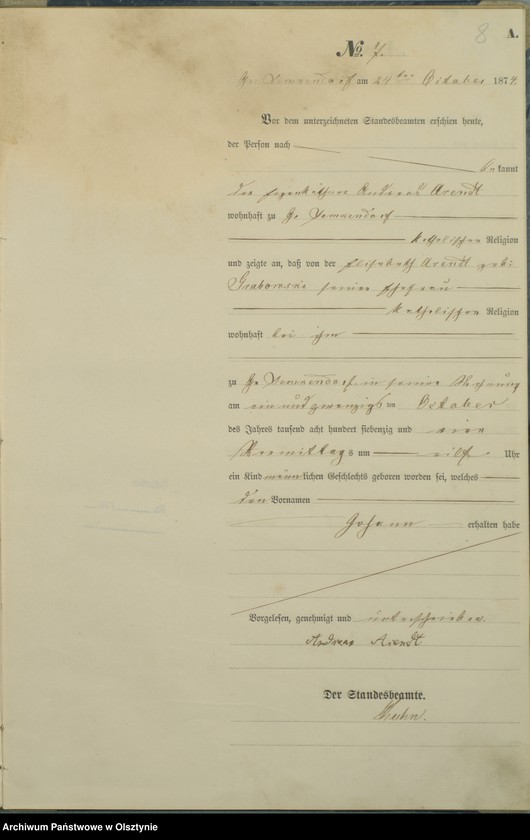 8
A.
No. 7.
Gr. Lemkendorf am 24ten October 1874.
Vor dem unterzeichneten Standesbeamten erschien heute,
der Person nach
bekannt
der Eigenkäthner Andreas Arendt
wohnhaft zu Gr. Lemkendorf
katholischer Religion
und zeigte an, daß von der Elisabeth Arendt geb:
Grabowski seiner Ehefrau
katholischer Religion
wohnhaft bei ihm
zu Gr. Lemkendorf in seiner Wohnung
am ein und zwanzigsten October
des Jahres tausend acht hundert siebenzig und vier
Vormittags um eilf Uhr
ein Kind männlichen Geschlechts geboren worden sei, welches
den Vornamen
Johann erhalten habe
Vorgelesen, genehmigt und unterschrieben.
Andreas Arendt
Der Standesbeamte.
Archiwum Państwowe w Olsztynie